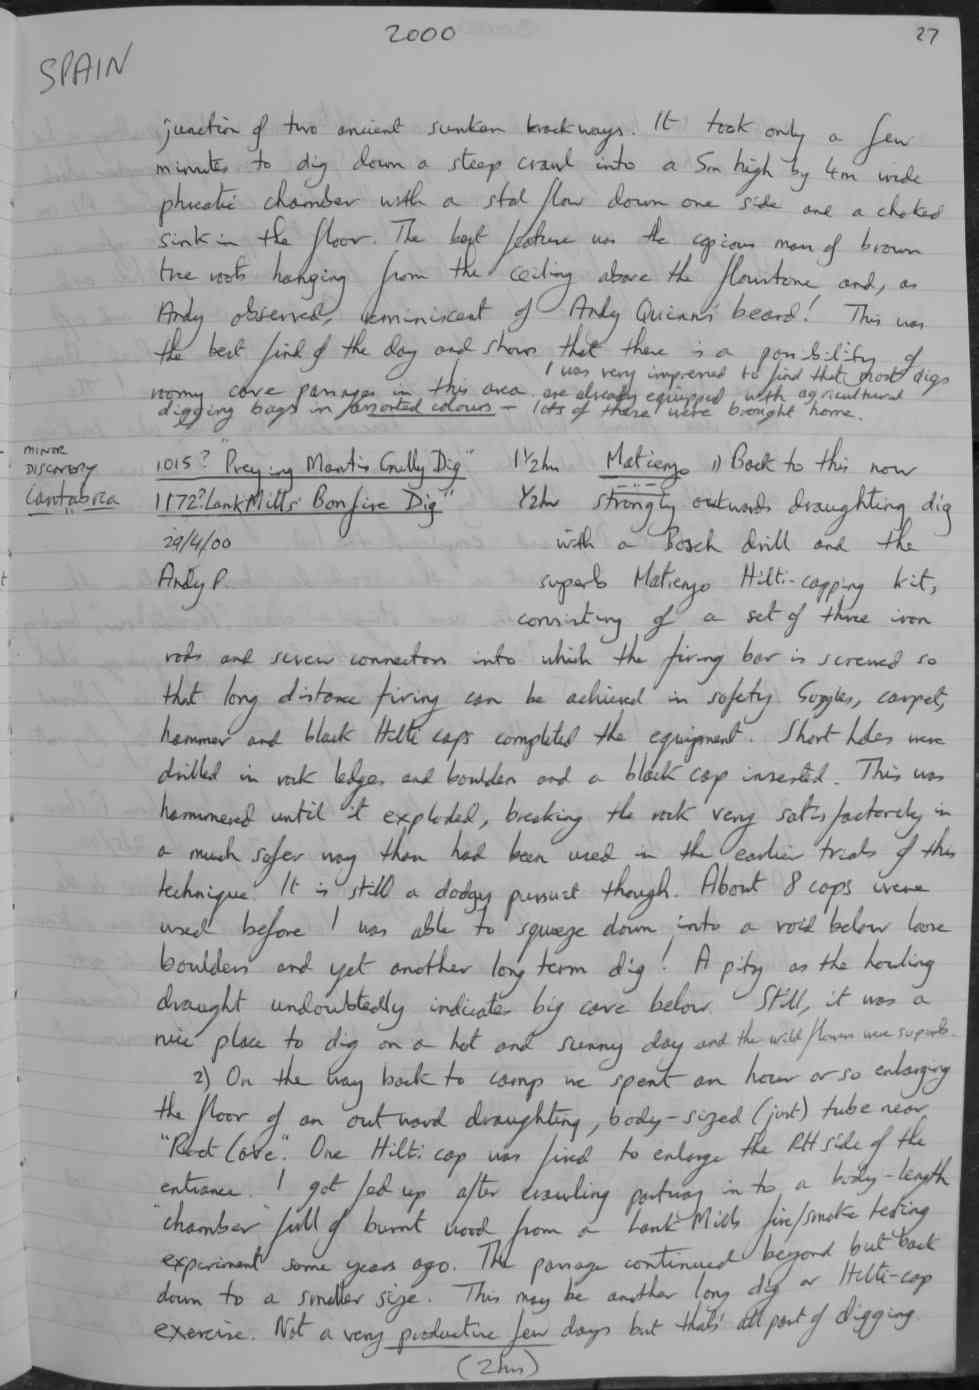 2000
27
SPAIN
junction of two ancient sunken trackways. It took only a few
minutes to dig down a steep crawl into a 5m high by 4m wide
phreatic chamber with a stal flow down one side and a choked
sink in the floor. The best feature was the copious mass of brown
tree roots hanging from the ceiling above the flowstone and, as
Andy observed, reminiscent of Andy Quinn's beard! This was
the best find of the day and shows that there is a possibility of
roomy cave passages in this area. I was very impressed to find that most digs
are already equipped with agricultural
digging bags in assorted colours - lots of these were brought home.
MINOR
DISCOVERY
Cantabria
1015? "Preying Mantis Gully Dig" 1½hrs Matienzo 1) Back to this now
1172? "Lank Mills' Bonfire Dig" ½hr strongly outwards draughting dig
29/4/00 with a Bosch drill and the
Andy P. superb Matienzo Hilti-capping kit,
consisting of a set of three iron
rods and screw connectors into which the firing bar is screwed so
that long distance firing can be achieved in safety. Goggles, carpet,
hammer and black Hilti caps completed the equipment. Short holes were
drilled in rock ledges and boulders and a black cap inserted. This was
hammered until it exploded, breaking the rock very satisfactorily in
a much safer way than had been used in the earlier trials of this
technique. It is still a dodgy pursuit though. About 8 caps were
used before I was able to squeeze down into a void below loose
boulders and yet another long term dig! A pity as the howling
draught undoubtedly indicates big cave below. Still, it was a
nice place to dig on a hot and sunny day and the wild flowers were superb.
2) On the way back to camp we spent an hour or so enlarging
the floor of an outward draughting, body-sized (just) tube near
"Rect Cave". One Hilti cap was fired to enlarge the RH side of the
entrance. I got fed up after crawling partway into a body-length
"chamber" full of burnt wood from a Lank Mills fire/smoke testing
experiment some years ago. The passage continued beyond but back
down to a smaller size. This may be another long dig or Hilti-cap
exercise. Not a very productive few days but that's all part of digging.
(2hrs)